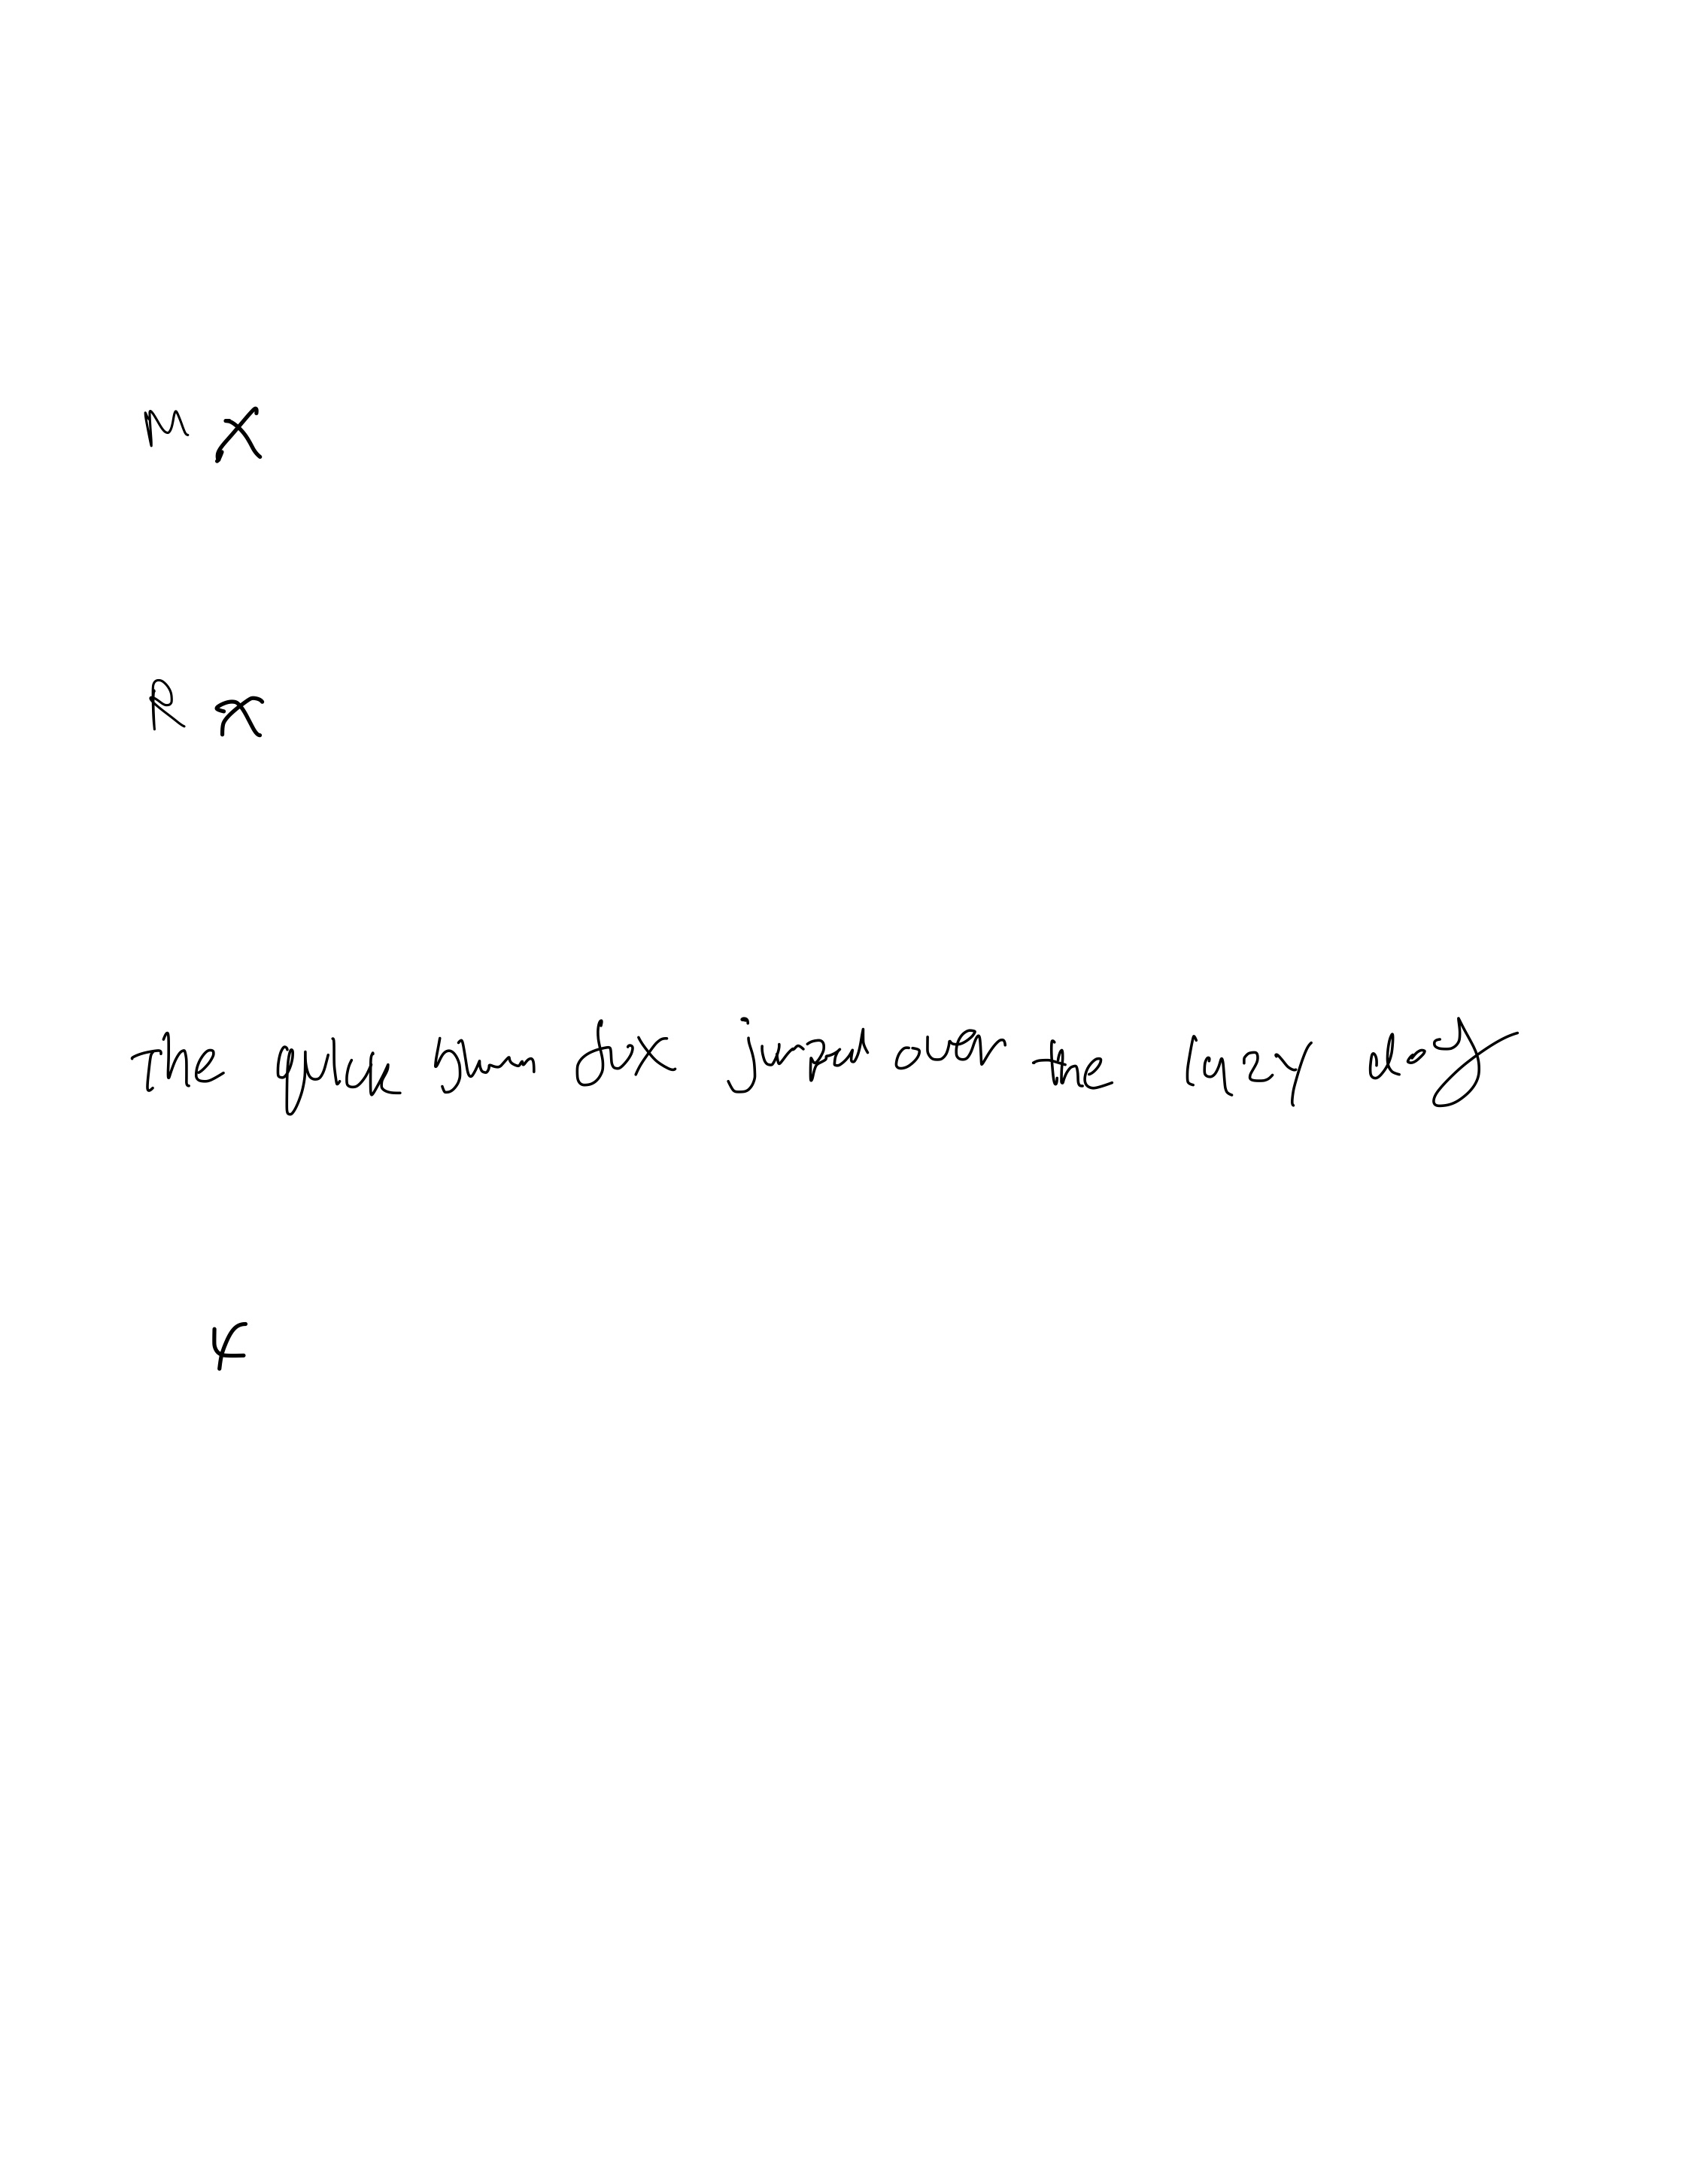 M X
R x
The quick brown fox jumped over the lazy dog